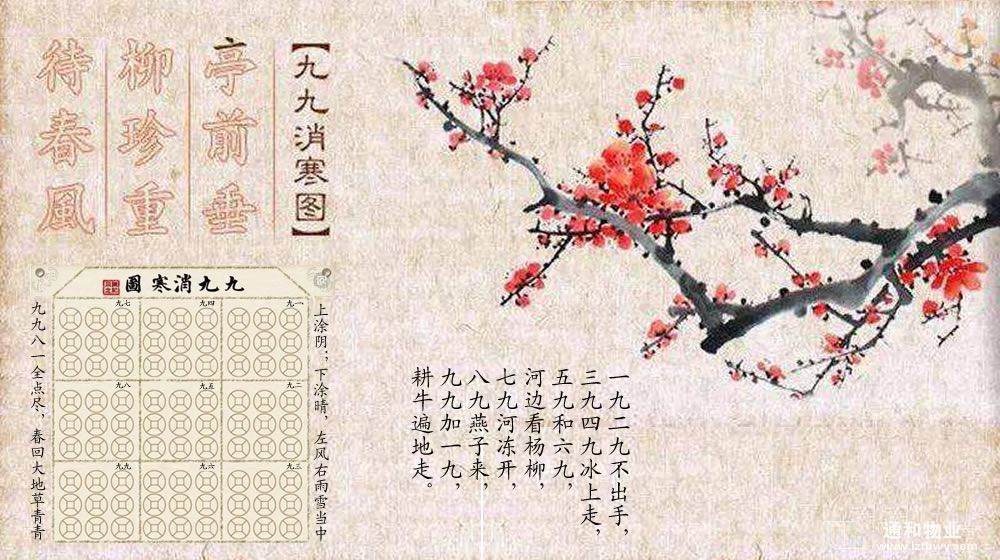 【九九消寒图】
亭前垂
柳珍重
待春風
九九消寒圖
一九
二九
三九
四九
五九
六九
七九
八九
九九
上涂阴；下涂晴，左风右雨雪当中
九九八一全点尽，春回大地草青青
一九二九不出手，
三九四九冰上走，
五九和六九，
河边看杨柳，
七九河冻开，
八九燕子来，
九九加一九，
耕牛遍地走。
通和物业